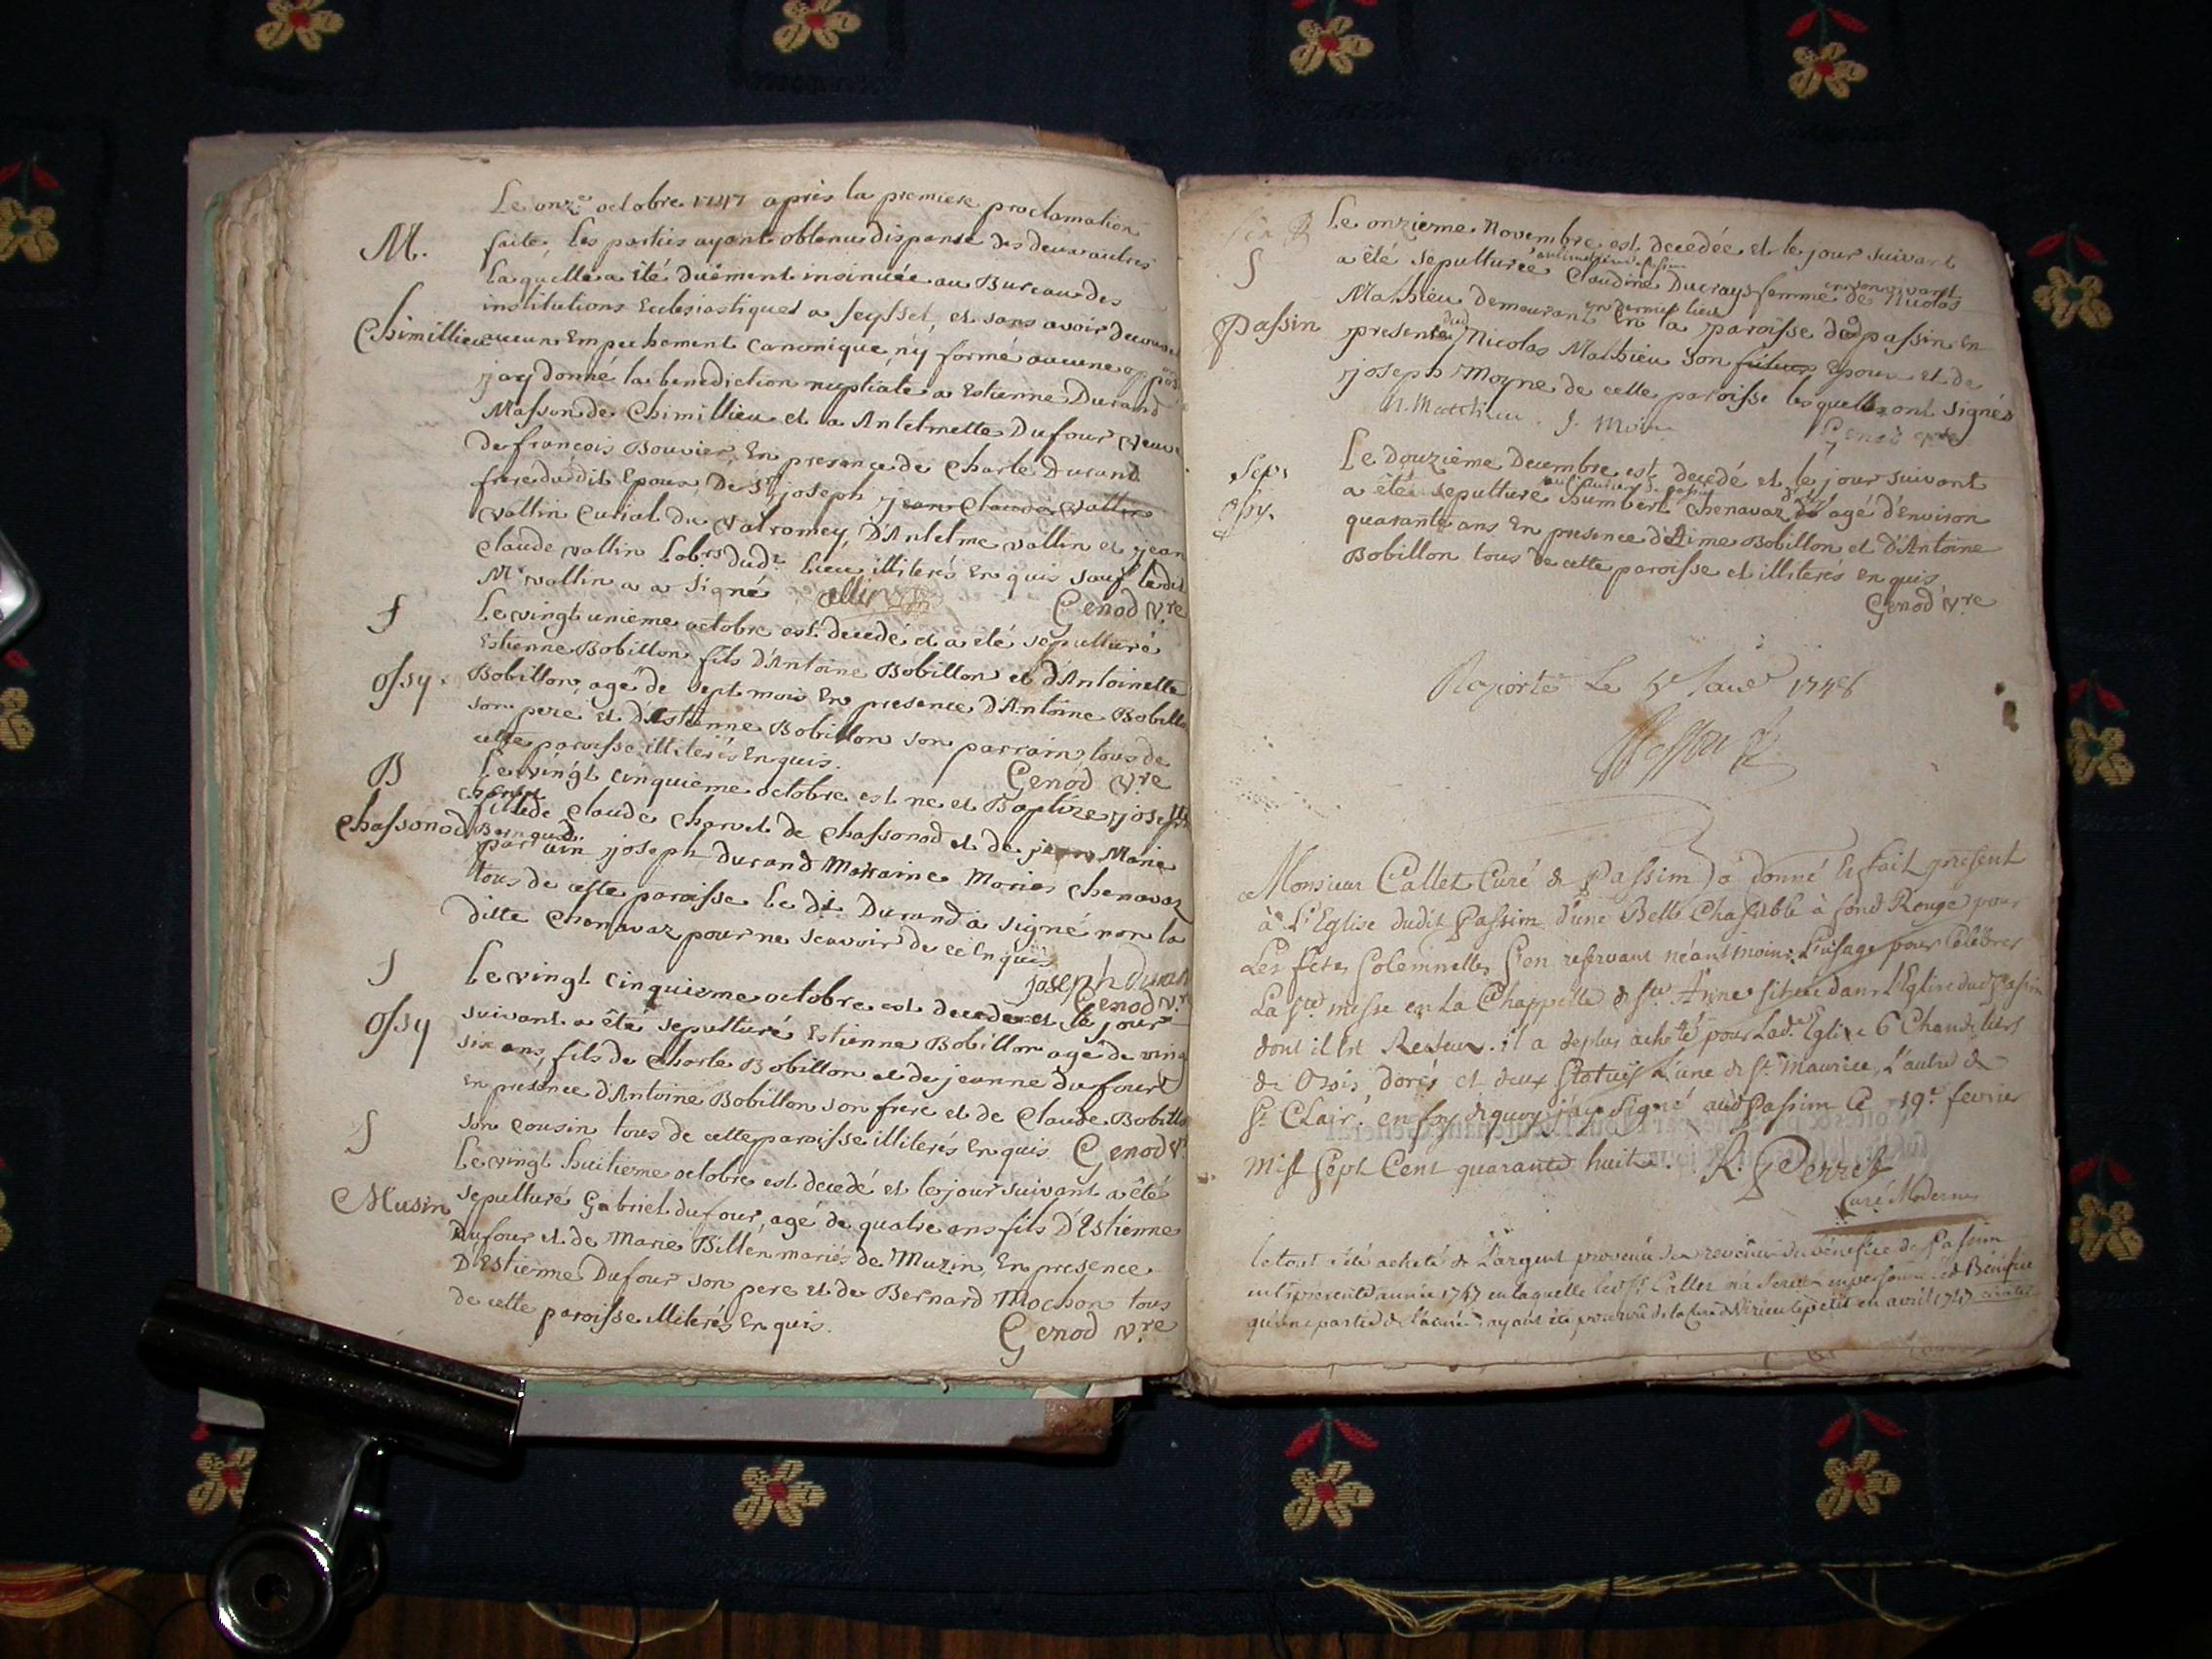 Le onz.e octobre 1747 après la premiere proclamation
M. faite, les parties ayant obtenu dispense des deux autres
laquelle a été duëment insinuée au Bureau des
institutions Ecclesiastiques a seyssel, et sans avoir decouvert
Chimillieu aucun Empechement canonique, n'y formé aucune
j'ay donné la benediction nuptiale a Estienne Durand
Masson de Chimillieu et a Antelmette Dufour veuve
de françois Bouvier, En presence de Charle Durand
frere dudit Epoux, De Sr joseph jean Claude vallin
vallin Curial du valromey, D'Antelme vallin et jean
Claude vallin Lab.rs dud.t lieu illiterés En quis sauf ledit
Mr vallin a a signé vallin Genod v.re
S Le vingt unieme octobre est decedé et a été sepulturé
Estienne Bobillon fils d'Antoine Bobillon et d'Antoinette
Ossy. Bobillon, agé de sept mois En presence d'Antoine Bobillon
son pere et d'Estienne Bobillon son parrain, tous de
cette paroisse illiterés Enquis. Genod v.re
B Le vingt cinquieme octobre est né et Baptize joseph
charvet
fils de Claude charvet de chassonod et de jean Marie
Chassonod
parrain joseph durand Marraine Marie chenavaz
tous de cette paroisse le dt Durand a signé non la
ditte Chenavaz pour ne scavoir de ce En quis
joseph duran
Genod v.re
S Le vingt cinquieme octobre est decedé et le jour
suivant a été sepulturé Estienne Bobillon agé de vingt
Ossy six ans, fils de Charle Bobillon et de jeanne dufour
En presence d'Antoine Bobillon son frere et de Claude Bobillon
son cousin tous de cette paroisse illiterés En quis. Genod v.
S Le vingt huitieme octobre est decedé et le jour suivant a été
Musin sepulturé Gabriel dufour, agé de quatre ans fils D'Estienne
Dufour et de Marie Billen mariés de Muzin, En presence
D'Estienne Dufour son pere et de Bernard Mochon tous
de cette paroisse illiterés En quis. Genod v.re
Le onzieme Novembre est decedée et le jour suivant
S a été sepulturée Claudine Ducrays femme de Nicolas
en son vivant
Mathieu demeurant en dernier lieu En la paroisse dud passin en
Passin presence dud Nicolas Mathieu son futur Epoux et de
joseph Moyne de cette paroisse lesquelles ont signés
N. Matthieu J. Moine Genod v.re
Sep. Le Douzieme Decembre est decedé et le jour suivant
a été sepulturé humbert Chenavaz agé d'Environ
Ossy. quarante ans En presence d'Aime Bobillon et d'Antoine
Bobillon tous de cette paroisse et illiterés en quis
Genod v.re
Raporté Le 1748
Monsieur Callet Curé de Passim a donné et fait present
à L'Eglise dudit Passim d'une Belle Chasuble à fond Rouge pour
Les fetes solemnelles s'en reservant néantmoins L'usage pour Celebrer
La ste messe en La Chappelle de Ste Anne située dans l'Eglise dud Passim
dont il est Recteur. il a deplus acheté pour Lad.e Eglise 6 Chandeliers
de Bois dorés et deux statues L'une de St Maurice, L'autre de
St Clair. en foy dequoy j'ay signé aud Passim Ce 19e fevrier
Mil sept Cent quarante huit. R. G Perret
Curé Moderne
le tout a été acheté de L'argent provenu des revenus du bénéfice de Passim
en la presente année 1747 en laquelle led Sr Callet n'a servi en personne led Bénéfice
qu'une partie de l'année, ayant été pourvû de la Cure de Virieu le petit en avril 1747